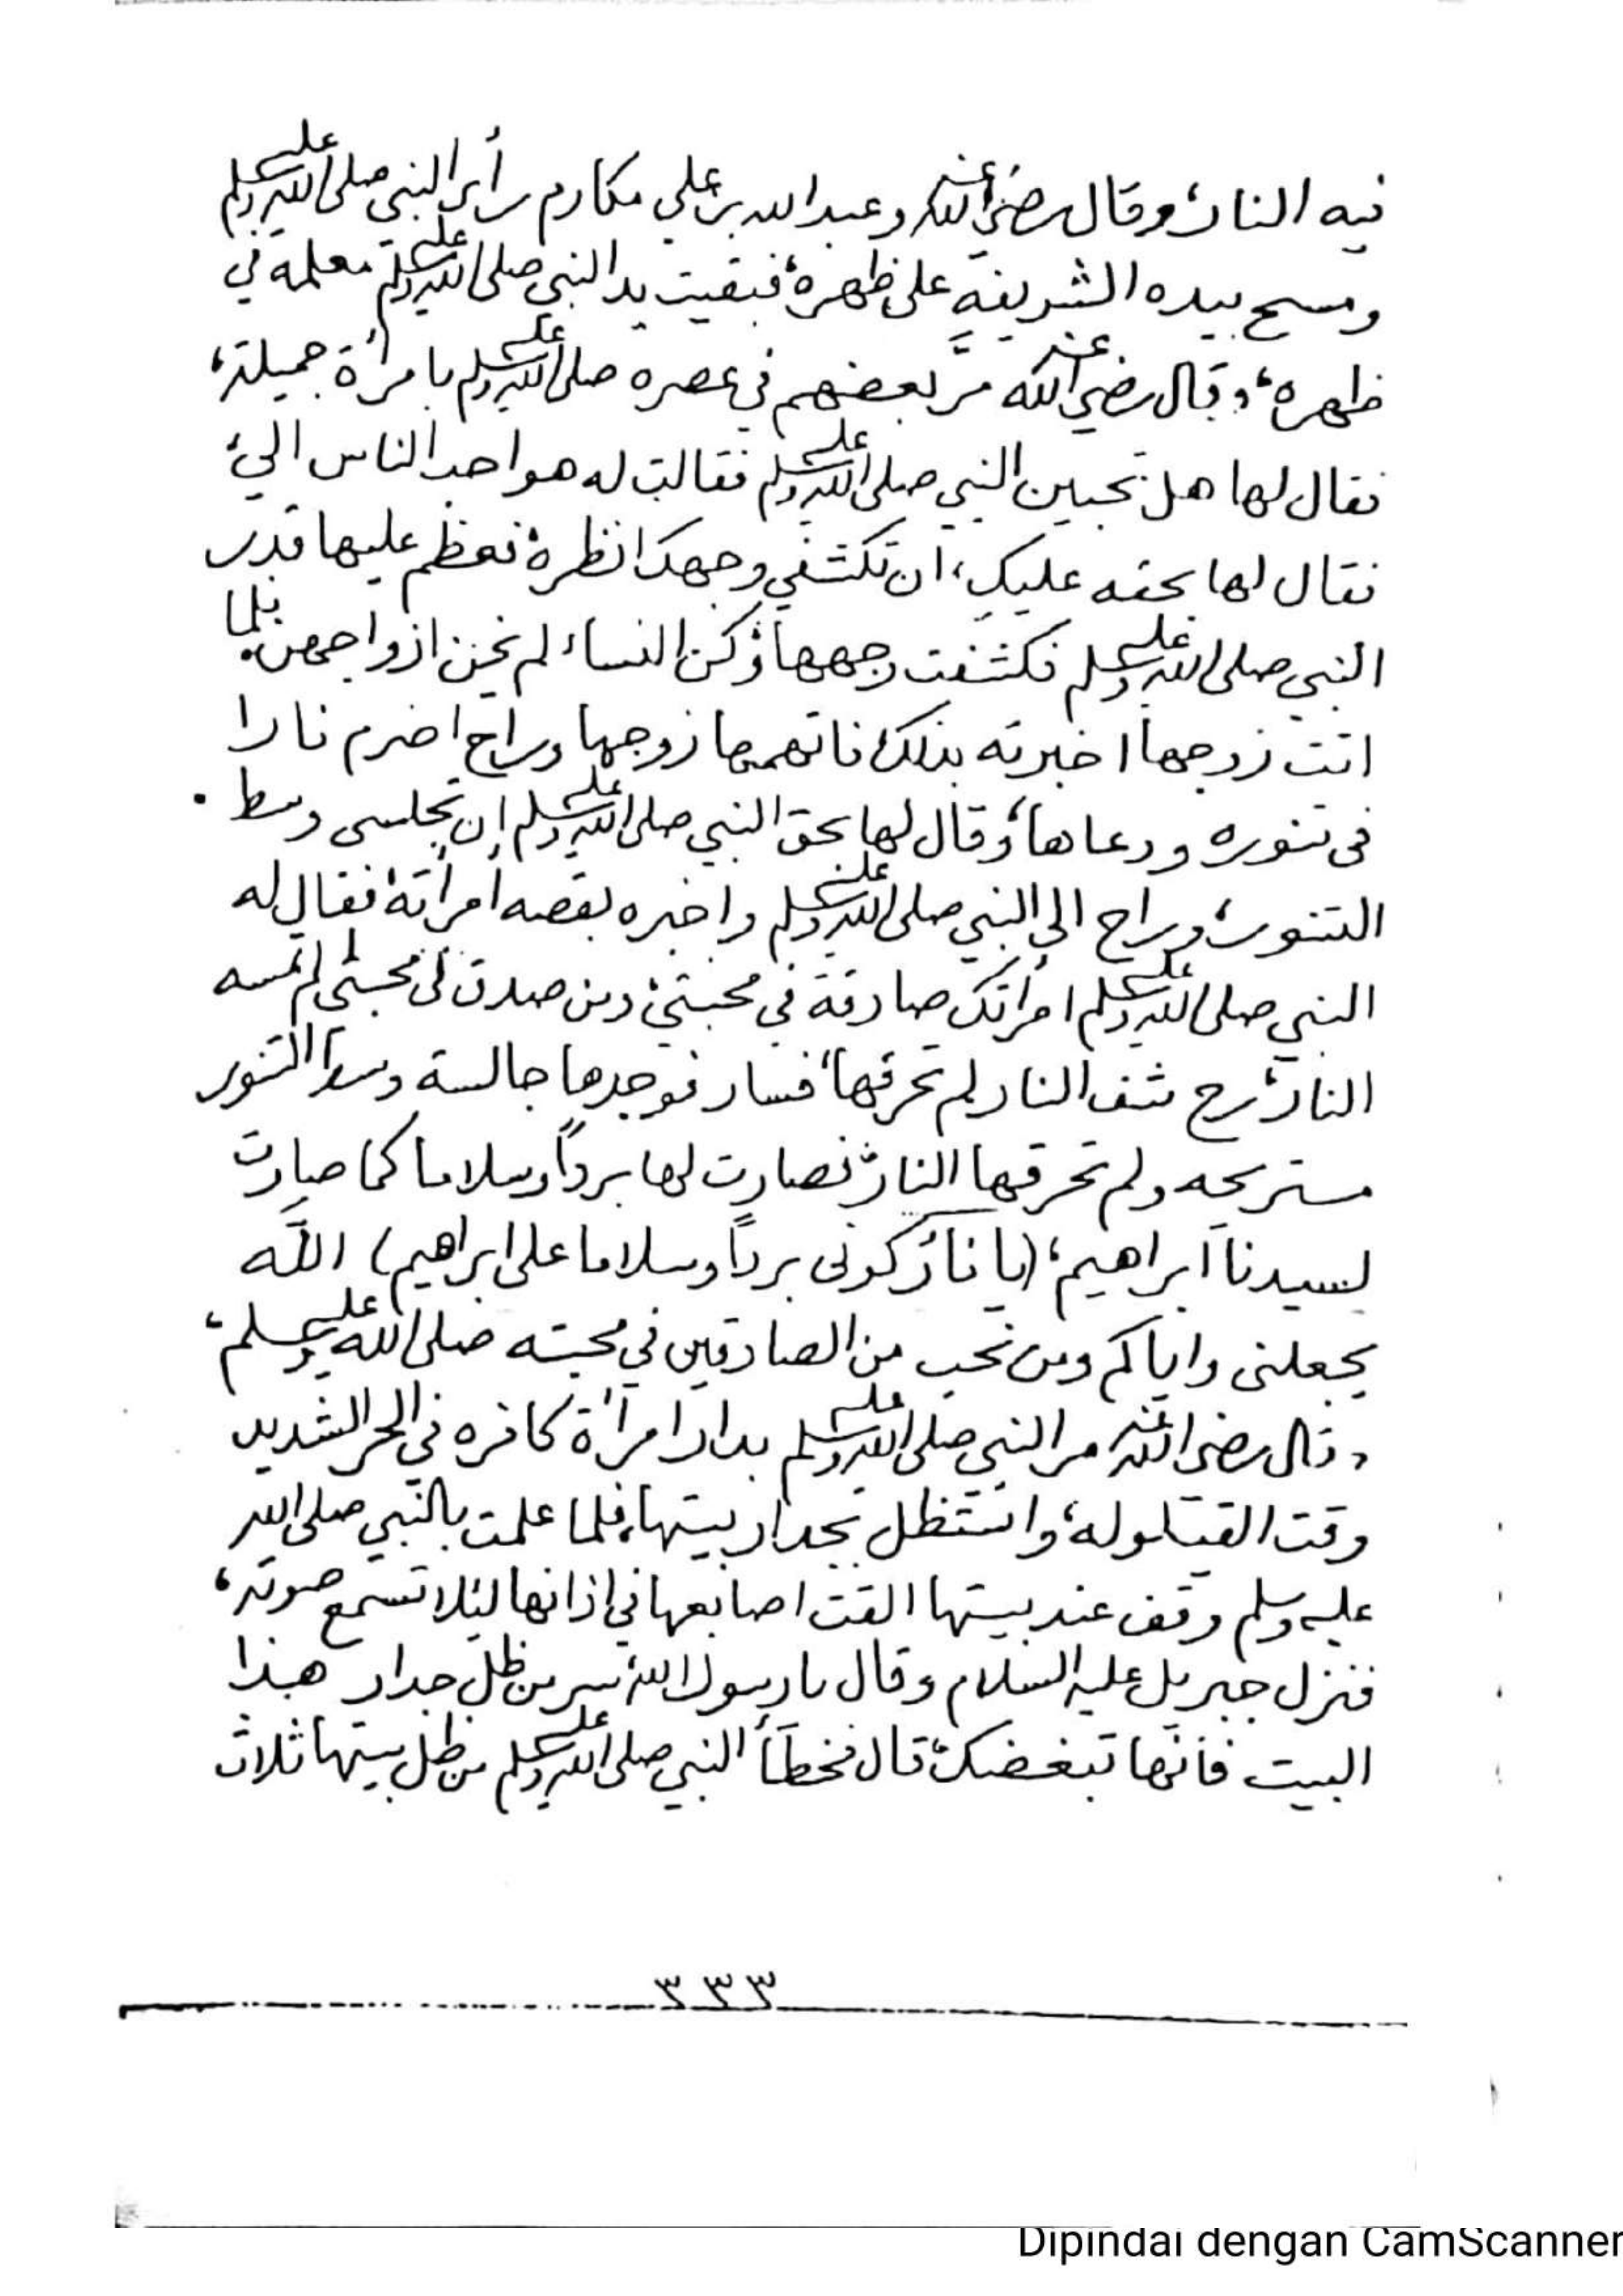 فيه النار، وقال رضي الله عنه وعبدالله بن علي مكارم رأى النبي صلى الله عليه وسلم
ومسح بيده الشريفة على ظهره، فبقيت يد النبي صلى الله عليه وسلم معلمة في
ظهره، وقال رضي الله عنه مرّ بعضهم في عصره صلى الله عليه وسلم بامرأة جميلة،
فقال لها هل تحبين النبي صلى الله عليه وسلم فقالت له هو احب الناس اليّ،
فقال لها بحقه عليكِ، ان تكشفي وجهك انظره، فعظم عليها قدر
النبي صلى الله عليه وسلم فكشفت وجهها، وكن النساء لم يخن ازواجهن، فلما
اتت زوجها اخبرته بذلك، فاتهمها زوجها وراح اضرم نارا
فى تنوره ودعاها، وقال لها بحق النبي صلى الله عليه وسلم إن تجلسى وسط
التنور، وراح الى النبي صلى الله عليه وسلم واخبره بقصه امرأته، فقال له
النبي صلى الله عليه وسلم امرأتك صادقة في محبتي، ومن صدق في محبتى لم تمسه
النار، رح شف النار لم تحرقها، فسار فوجدها جالسة وسط التنور
مستريحه ولم تحرقها النار، فصارت لها برداً وسلاما كما صارت
لسيدنا ابراهيم، (يا نارُ كونى برداً وسلاما على ابراهيم) اللّٰه
يجعلنى واياكم ومن نحب من الصادقين في محبته صلى الله عليه وسلم،
وقال رضي الله عنه مر النبي صلى الله عليه وسلم بدار امرأة كافره في الحر الشديد
وقت القيلوله، واستظل بجدار بيتها، فلما علمت بالنبي صلى الله
عليه وسلم وقف عند بيتها القت اصابعها في اذانها لئلا تسمع صوته،
فنزل جبريل عليه السلام وقال يا رسول الله، سر من ظل جدار هذا
البيت فأنها تبغضك، قال فخطأ النبي صلى الله عليه وسلم من ظل بيتها ثلاث
٣٣٣
Dipindai dengan CamScanner